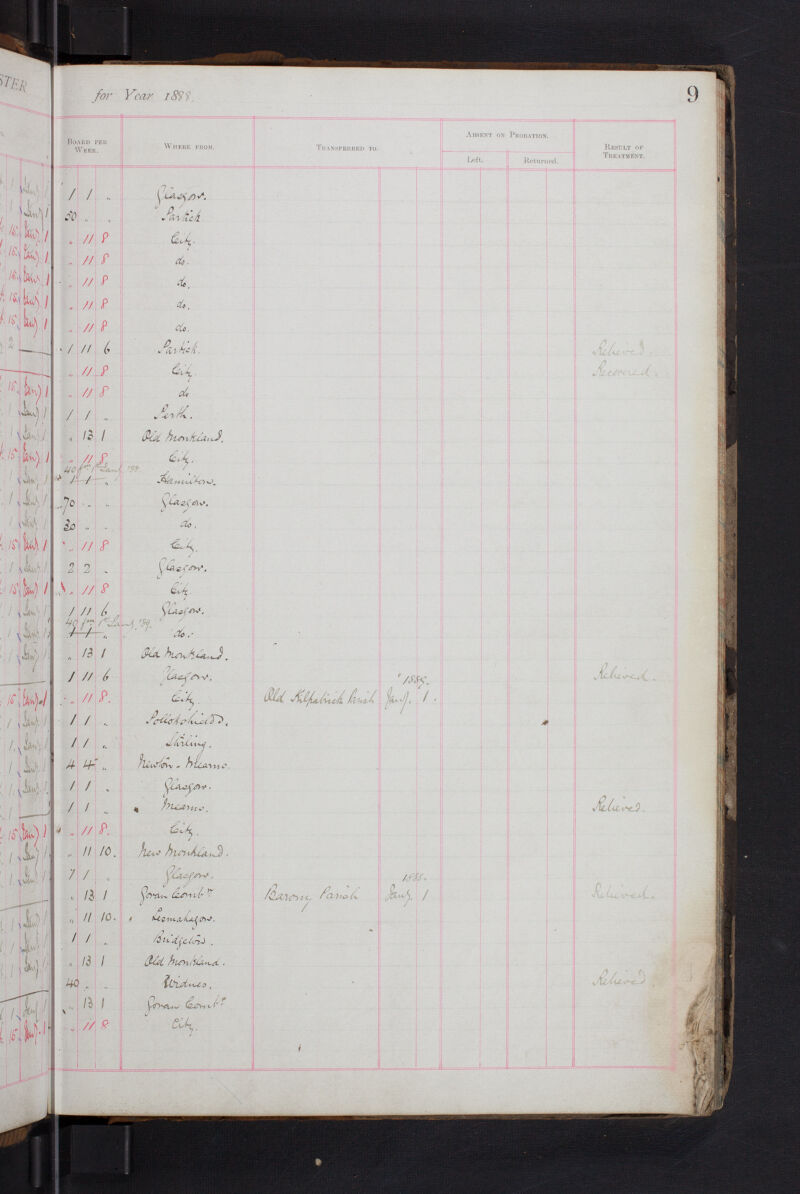 for Year 1888.
9
BOARD PER WEEK.
WHERE FROM.
TRANSFERRED TO.
ABSENT ON PROBATION.
Left.
Returned.
RESULT OF TREATMENT.
1 1 „ Glasgow.
50 „ „ Partick
„ 11 8 City.
„ 11 8 do.
„ 11 8 do.
„ 11 8 do.
„ 11 8 do.
1 11 6 Partick. Relieved.
„ 11 8 City. Recovered.
„ 11 8 do
1 1 „ Perth.
„ 13 1 Old Monkland.
„ 11 8 City.
40 fm 1st Jany '89.
1 1 „ Hamilton.
70 „ „ Glasgow.
30 „ „ do.
„ 11 8 City.
2 2 „ Glasgow.
„ 11 8 City
1 11 6 Glasgow.
40 fm 1st Jany '89.
1 1 „ do.
„ 13 1 Old Monkland.
1 11 6 Glasgow. Relieved.
„ 11 8. City Old Kilpatrick Parish Jany. 1.
1 1 „ Pollokshields.
1 1 „ Stirling.
4 4 „ Newton-Mearns.
1 1 „ Glasgow.
1 1 „ Mearns. Relieved.
„ 11 8. City.
„ 11 10. New Monkland.
7 1 „ Glasgow. 1888.
„ 13 1 Govan Combn Barony Parish Jany. 1 Relieved.
„ 11 10. Lesmahagow.
1 1 „ Bridgeton.
„ 13 1 Old Monkland.
40 „ „ Widnes. Relieved
„ 13 1 Govan Combn
„ 11 8 City.